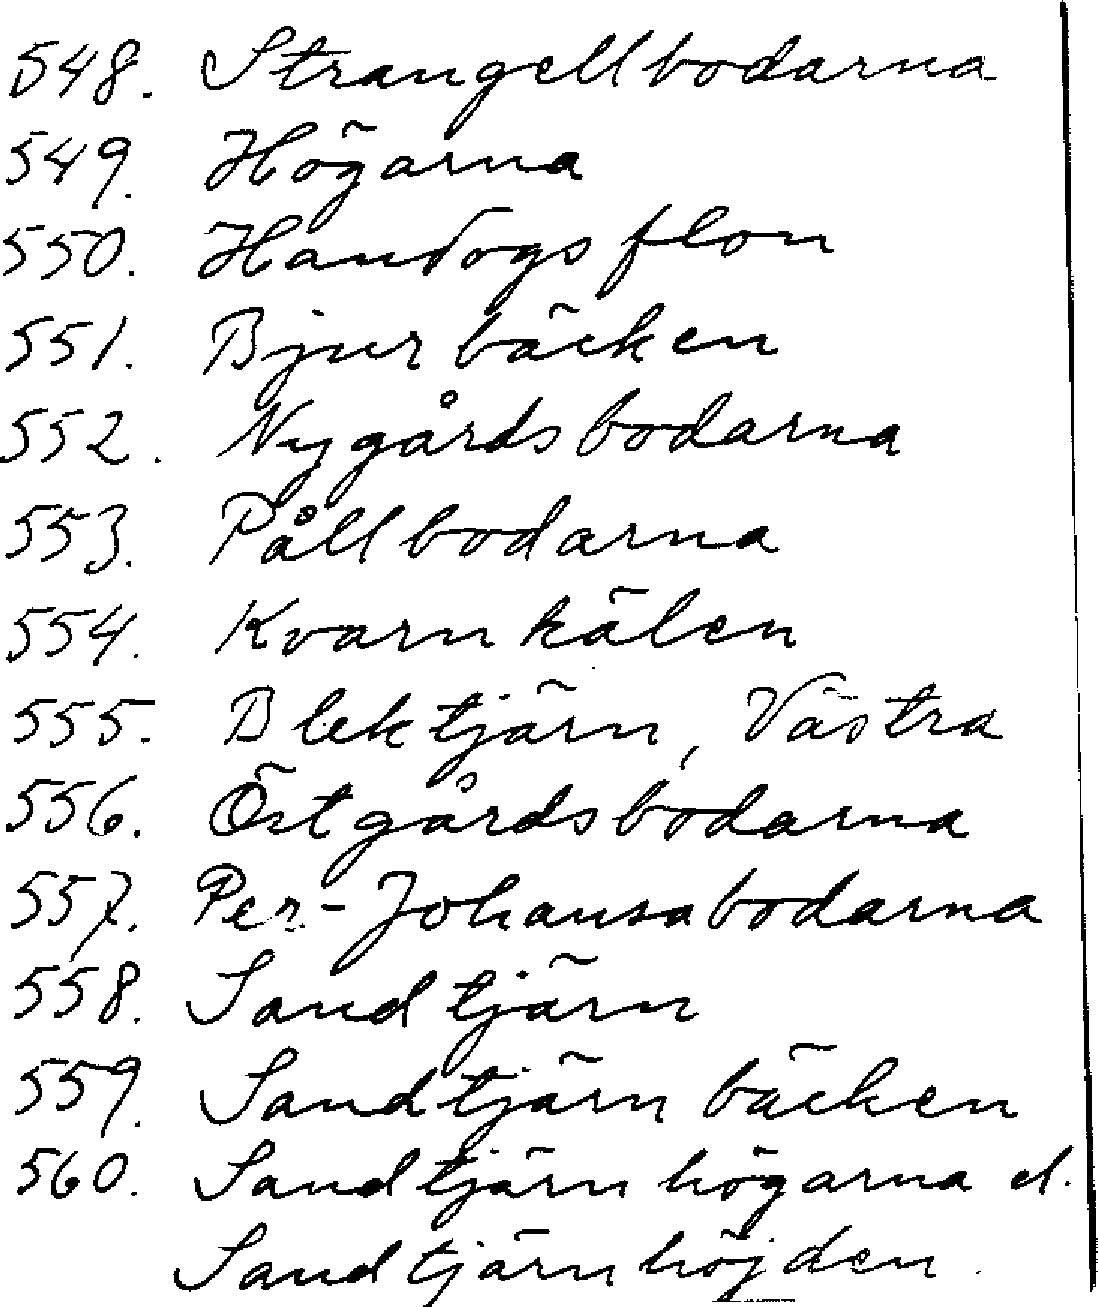 548. Strangellbodarna
549. Högarna
550. Handogsflon
551. Bjurbäcken
552. Nygårdsbodarna
553. Pållbodarna
554. Kvarnkälen
555. Blektjärn, Västra
556. Östgårdsbodarna
557. Per-Johansabodarna
558. Sandtjärn
559. Sandtjärnbäcken
560. Sandtjärnhögarna el.
Sandtjärnhöjden.